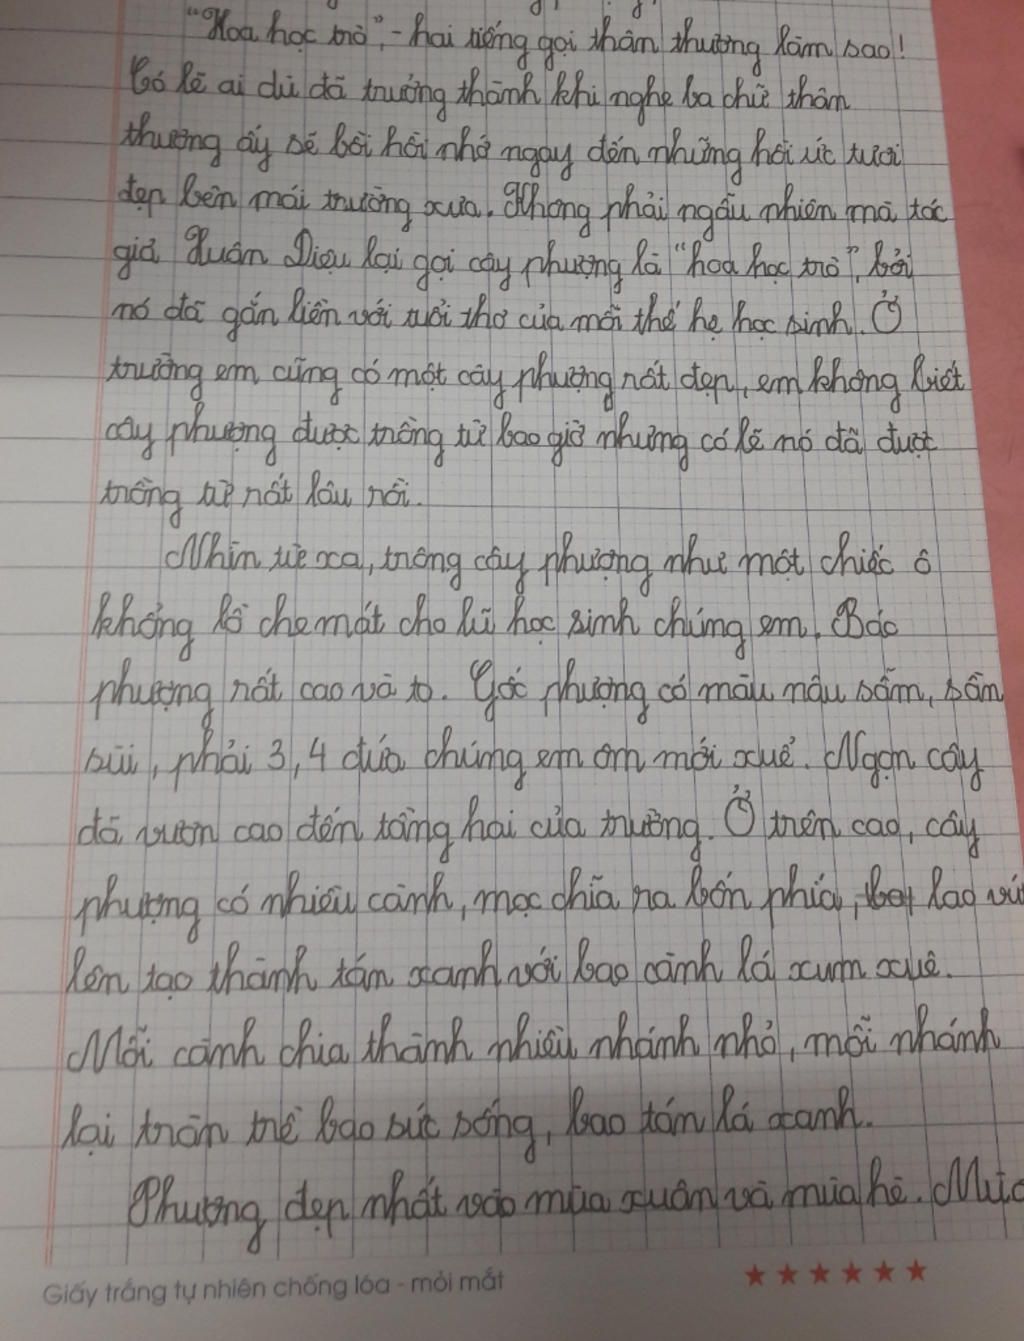 "Hoa học trò", - hai tiếng gọi thân thương làm sao!
Có lẽ ai dù đã trưởng thành khi nghe ba chữ thân
thương ấy sẽ bồi hồi nhớ ngay đến những hồi ức tươi
đẹp bên mái trường xưa. Không phải ngẫu nhiên mà tác
giả Xuân Diệu lại gọi cây phượng là "hoa học trò", bởi
nó đã gắn liền với tuổi thơ của mỗi thế hệ học sinh. Ở
trường em cũng có một cây phượng rất đẹp, em không biết
cây phượng được trồng từ bao giờ nhưng có lẽ nó đã được
trồng từ rất lâu rồi.
Nhìn từ xa, trông cây phượng như một chiếc ô
khổng lồ che mát cho lũ học sinh chúng em. Bác
phượng rất cao và to. Gốc phượng có màu nâu sẫm, sần
sùi, phải 3, 4 đứa chúng em ôm mới xuể. Ngọn cây
đã vươn cao đến tầng hai của trường. Ở trên cao, cây
phượng có nhiều cành, mọc chĩa ra bốn phía, lao vút
lên tạo thành tán xanh với bao cành lá xum xuê.
Mỗi cành chia thành nhiều nhánh nhỏ, mỗi nhánh
lại tràn trề bao sức sống, bao tán lá xanh.
Phượng đẹp nhất vào mùa xuân và mùa hè. Mùa
Giấy trắng tự nhiên chống lóa - mỏi mắt